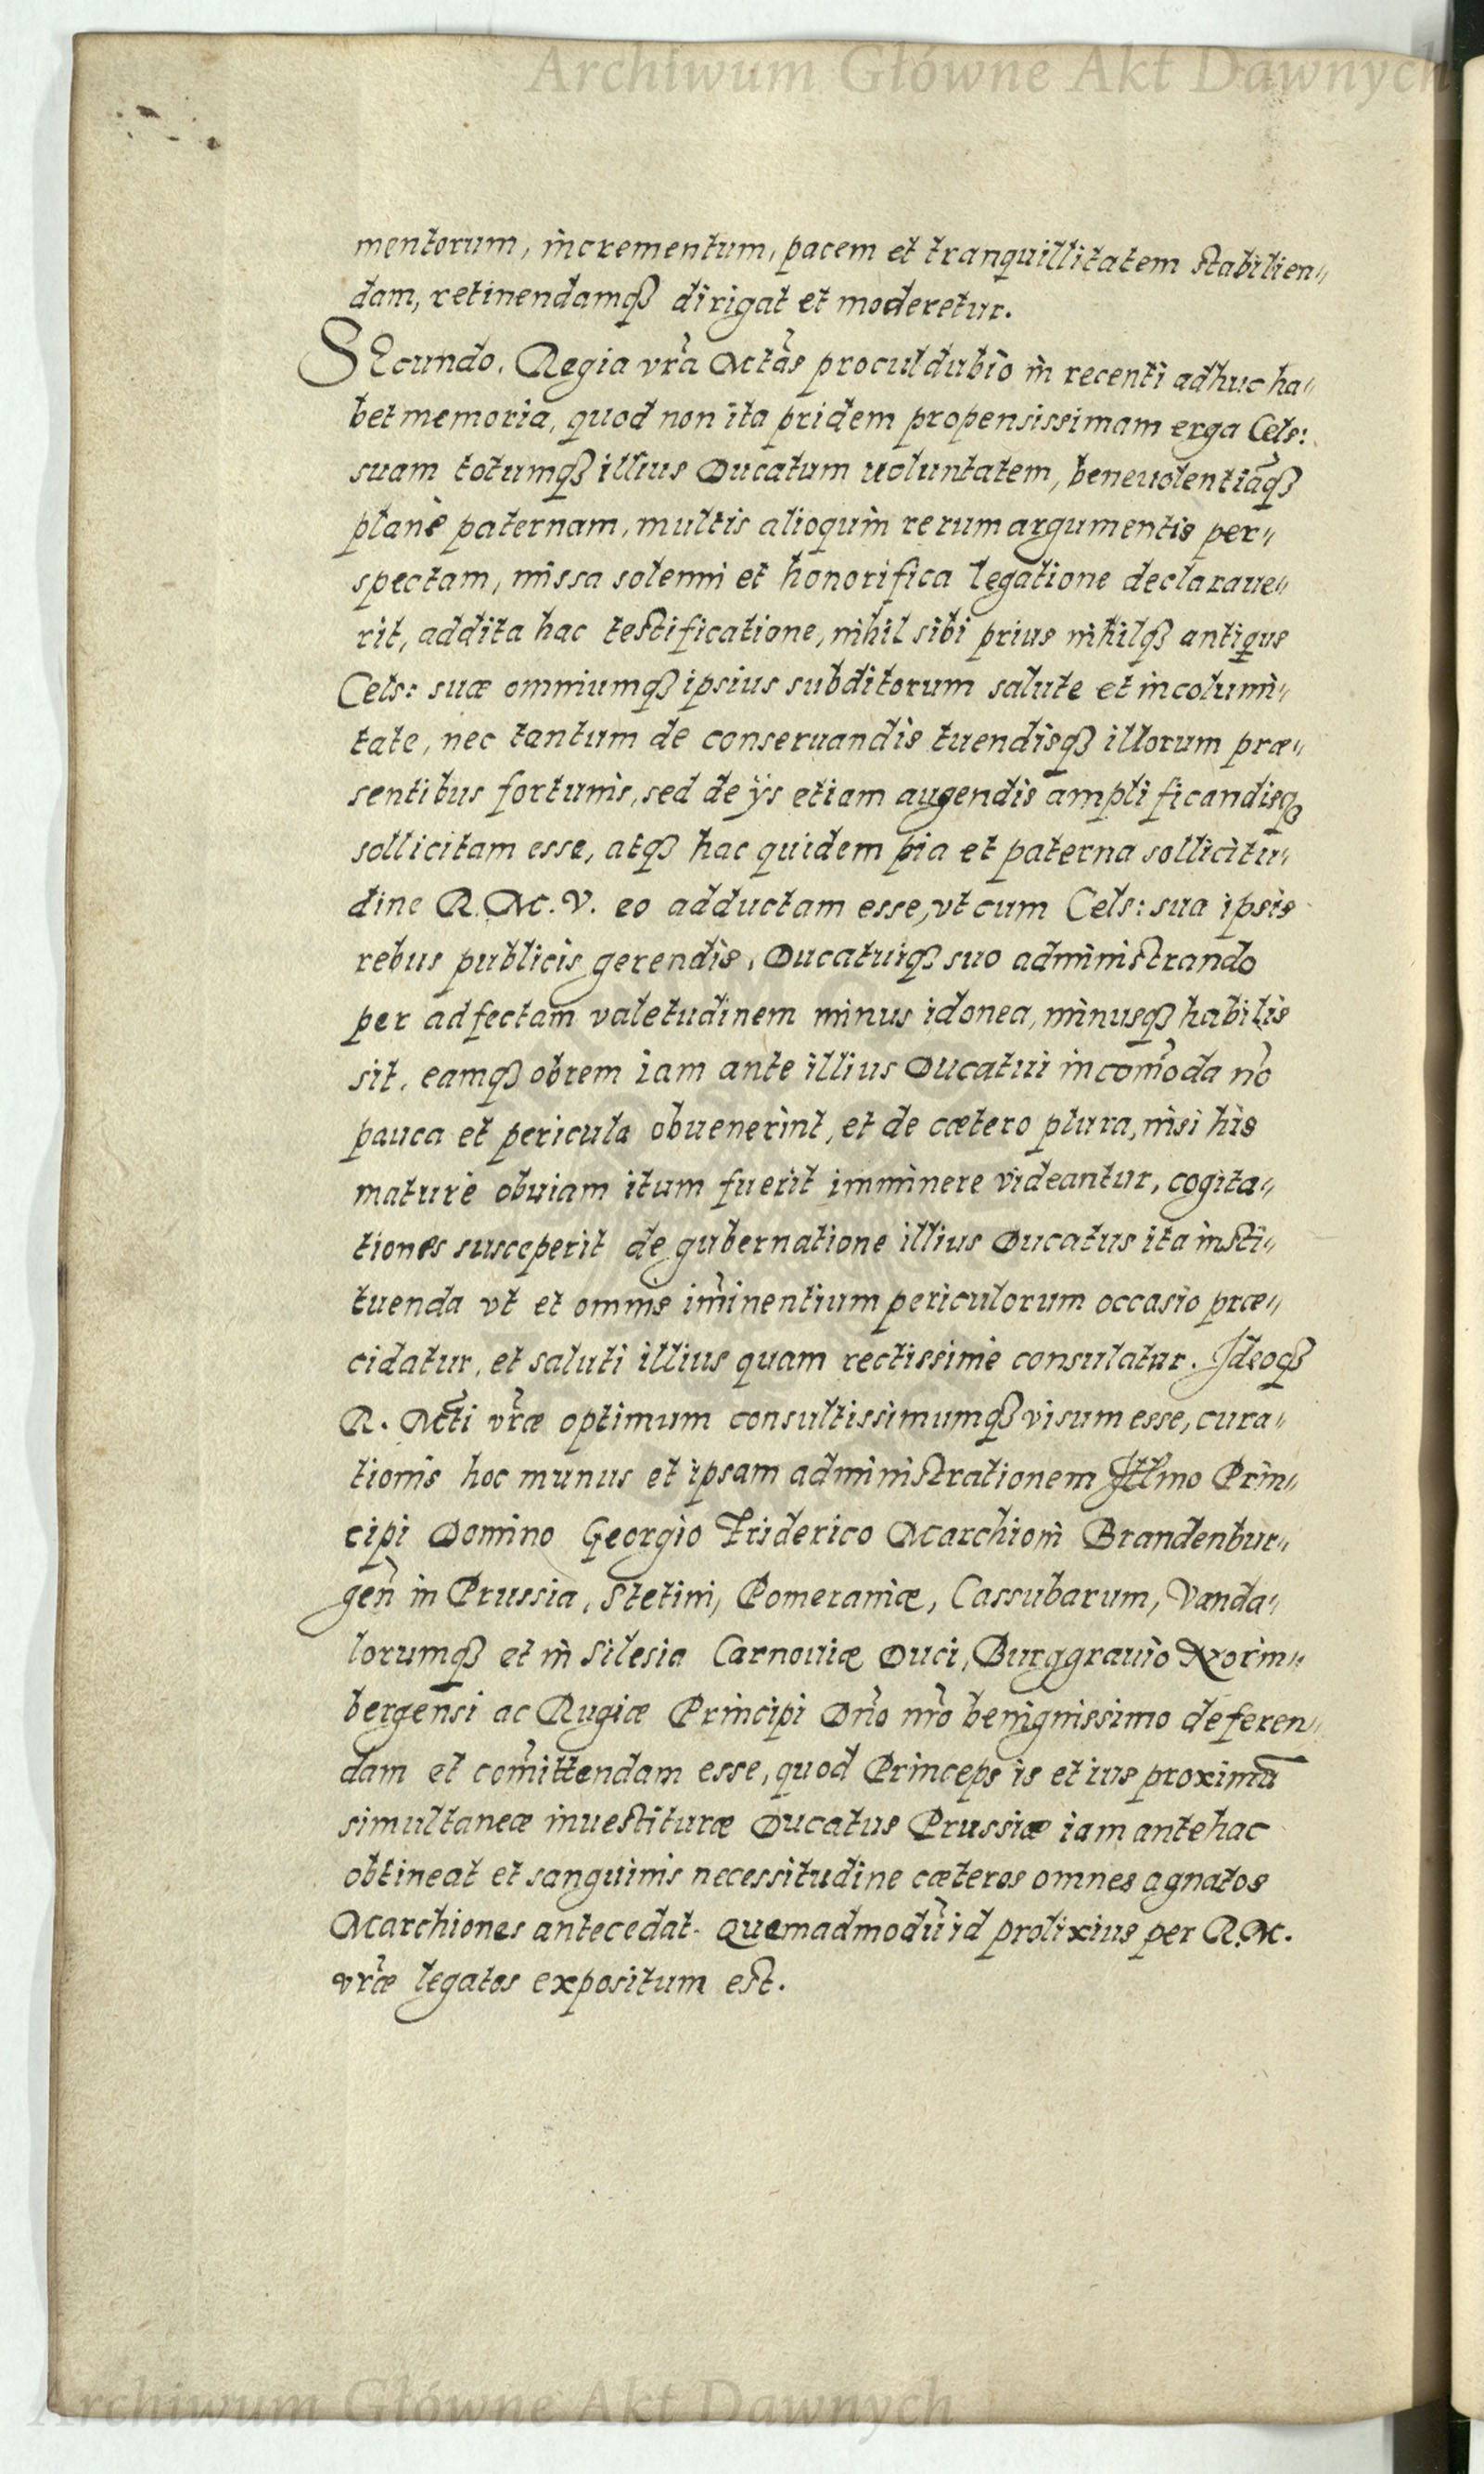 Archiwum Główne Akt Dawnych
mentorum, incrementum, pacem et tranquillitatem stabilien„
dam, retinendamqꝫ dirigat et moderetur.
SEcundo. Regia vr̃a Mctãs proculdubio in recenti adhuc ha„
bet memoria, quod non ita pridem propensissimam erga Cels:
suam totumqꝫ illius Ducatum uoluntatem, beneuolentiãqꝫ
planè paternam, multis alioquin rerum argumentis per„
spectam, missa solenni et honorifica legatione declaraue„
rit, addita hac testificatione, nihil sibi prius nihilqꝫ antiqus
Cels: suæ omniumqꝫ ipsius subditorum salute et incolumi„
tate, nec tantum de conseruandis tuendisqꝫ illorum præ„
sentibus fortunis, sed de ijs etiam augendis amplificandisqꝫ
sollicitam esse, atqꝫ hac quidem pia et paterna sollicitu„
dine R. M. V. eo adductam esse, vt cum Cels: sua ipsis
rebus publicis gerendis, Ducatuiqꝫ suo administrando
per adfectam valetudinem minus idonea, minusqꝫ habilis
sit, eamqꝫ obrem iam ante illius Ducatui incom̃oda nõ
pauca et pericula obuenerint, et de cætero plura, nisi his
maturè obuiam itum fuerit imminere videantur, cogita„
tiones susceperit de gubernatione illius Ducatus ita insti„
tuenda vt et omnis im̃inentium periculorum occasio præ„
cidatur, et saluti illius quam rectissimè consulatur. Ideoqꝫ
R. Mc̃ti vr̃æ optimum consultissimumqꝫ visum esse, cura„
tionis hoc munus et ipsam administrationem Illmo Prin„
cipi Domino Georgio Friderico Marchioni Brandenbur„
geñ in Prussia, Stetini, Pomeraniæ, Cassubarum, Vanda„
lorumqꝫ et in Silesia Carnouiæ Duci, Burggrauio Norim„
bergensi ac Rugiæ Principi Dño nr̃o benignissimo deferen„
dam et com̃ittendam esse, quod Princeps is et ius proximũ
simultaneæ inuestituræ Ducatus Prussiæ iam antehac
obtineat et sanguinis necessitudine cæteros omnes agnatos
Marchiones antecedat. quemadmodũ id prolixius per R. M.
vr̃æ legatos expositum est.
Archiwum Główne Akt Dawnych